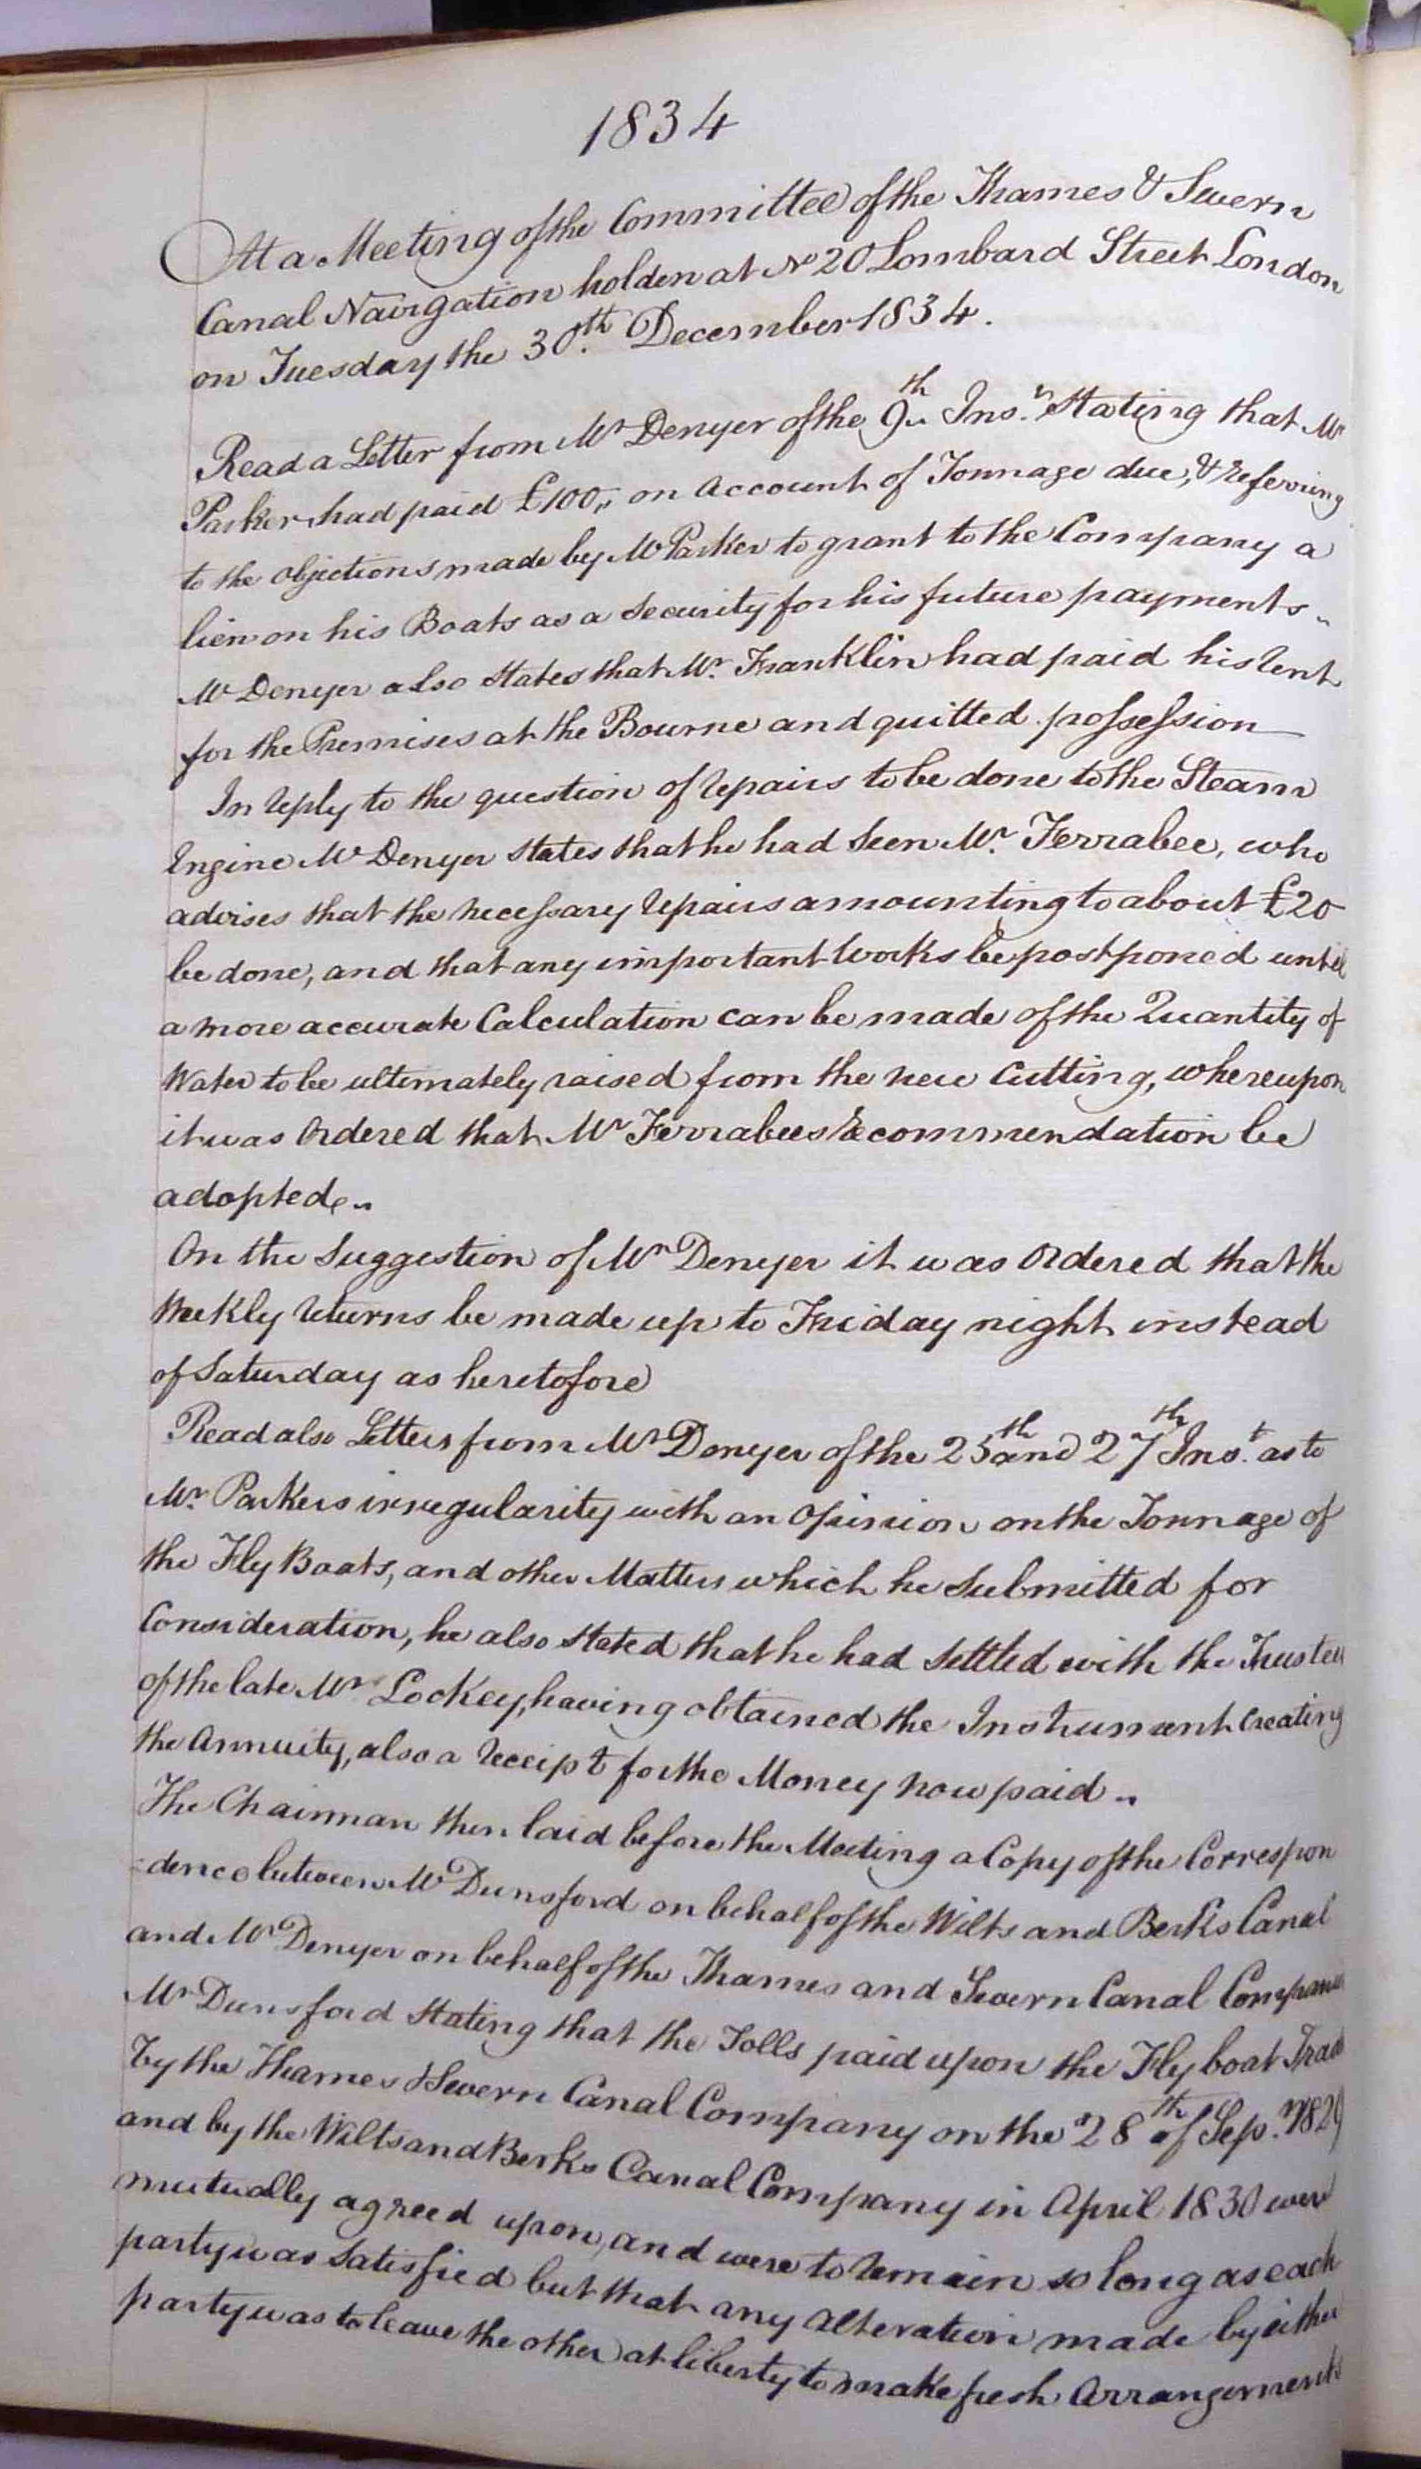 1834
At a Meeting of the Committee of the Thames & Severn
Canal Navigation holden at No 20 Lombard Street London
on Tuesday the 30th. December 1834.
Read a Letter from Mr Denyer of the 9th Inst. Stating that Mr
Parker had paid £100,, on Account of Tonnage due, & referring
to the objections made by Mr Parker to grant to the Company a
lien on his Boats as a Security for his future payments..
Mr Denyer also States that Mr. Franklin had paid his rent
for the Premises at the Bourne and quitted possession
In reply to the question of repairs to be done to the Steam
Engine Mr Denyer states that he had seen Mr. Ferrabee, who
advises that the necessary repairs amounting to about £20
be done, and that any important Works be postponed until
a more accurate Calculation can be made of the Quantity of
Water to be ultimately raised from the new Cutting, whereupon
it was Ordered that Mr Ferrabees Recommendation be
adopted..
On the Suggestion of Mr Denyer it was Ordered that the
Weekly returns be made up to Friday night instead
of Saturday as heretofore
Read also Letters from Mr Denyer of the 25th and 27th Inst. as to
Mr. Parkers irregularity with an Opinion on the Tonnage of
the Fly Boats, and other Matters which he Submitted for
Consideration, he also stated that he had Settled with the Trustees
of the late Mr Lockey, having obtained the Instrument Creating
the Annuity, also a receipt for the Money now paid..
The Chairman then laid before the Meeting a Copy of the Correspon
=dence between Mr Dunsford on behalf of the Wilts and Berks Canal
and Mr Denyer on behalf of the Thames and Severn Canal Companies
Mr Dunsford Stating that the Tolls paid upon the Fly boat Trade
by the Thames & Severn Canal Company on the 28th of Sepr. 1829
and by the Wilts and Berks Canal Company in April 1830 were
mutually agreed upon, and were to remain so long as each
party was Satisfied but that any Alteration made by either
party was to leave the other at liberty to make fresh Arrangements